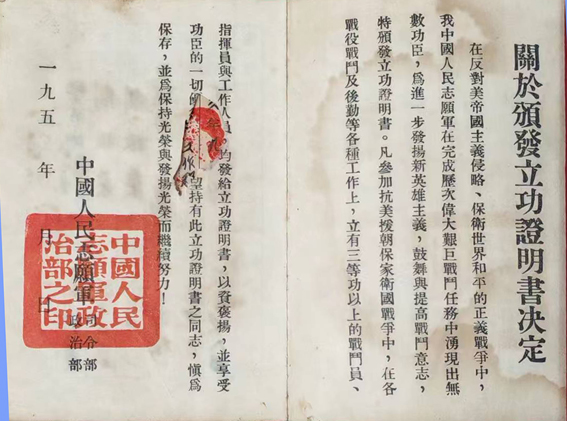 關於頒發立功證明書決定
在反對美帝國主義侵略、保衛世界和平的正義戰爭中，
我中國人民志願軍在完成歷次偉大艱巨戰鬥任務中湧現出無
數功臣，爲進一步發揚新英雄主義，鼓舞與提高戰鬥意志，
特頒發立功證明書。凡參加抗美援朝保家衛國戰爭中，在各
戰役戰鬥及後勤等各種工作上，立有三等功以上的戰鬥員、
指揮員與工作人員。均發給立功證明書，以資褒揚，並享受
功臣的一切 望持有此立功證明書之同志，愼爲
保存，並爲保持光榮與發揚光榮而繼續努力！
中國人民志願軍
司令部
政治部
一九五 年 月 日
中國人民
志願軍政
治部之印